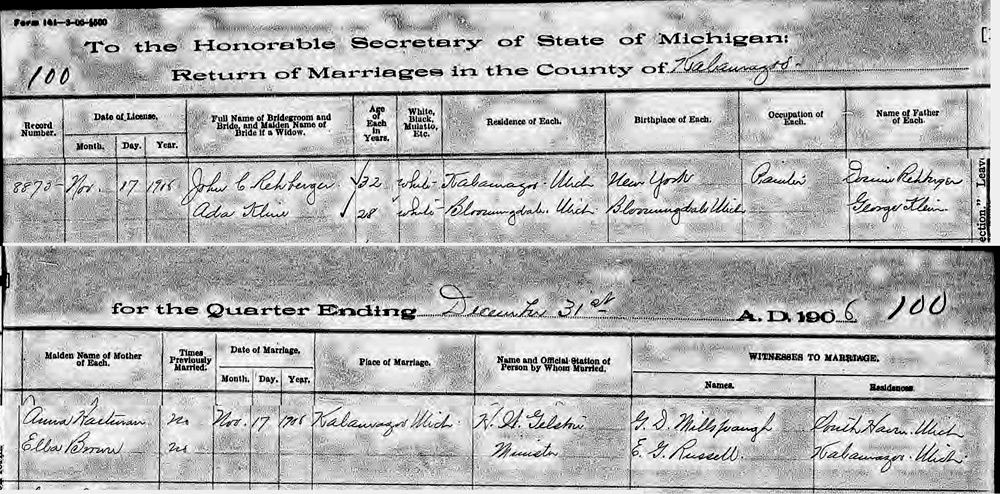 Form 161—3-06-5500
To the Honorable Secretary of State of Michigan:
100 Return of Marriages in the County of Kalamazoo.
Record Number. Date of License. Full Name of Bridegroom and Bride, and Maiden Name of Bride if a Widow. Age of Each in Years. White, Black, Mulatto, Etc. Residence of Each. Birthplace of Each. Occupation of Each. Name of Father of Each.
Month. Day. Year.
8870 Nov. 17 1906 John C Rehberger 32 white Kalamazoo Mich New York Rehberger
Ada Kline 28 white Bloomingdale Mich Bloomingdale Mich George Klein
ection," Leav
for the Quarter Ending December 31st A. D. 1906 100
Maiden Name of Mother of Each. Times Previously Married. Date of Marriage. Place of Marriage. Name and Official Station of Person by Whom Married. WITNESSES TO MARRIAGE.
Month. Day. Year. Names. Residences.
Anna no Nov. 17 1906 Kalamazoo Mich. H. W. Gelston G. D. Millspaugh South Haven Mich
Ella Brown no Minister E. G. Russell. Kalamazoo Mich